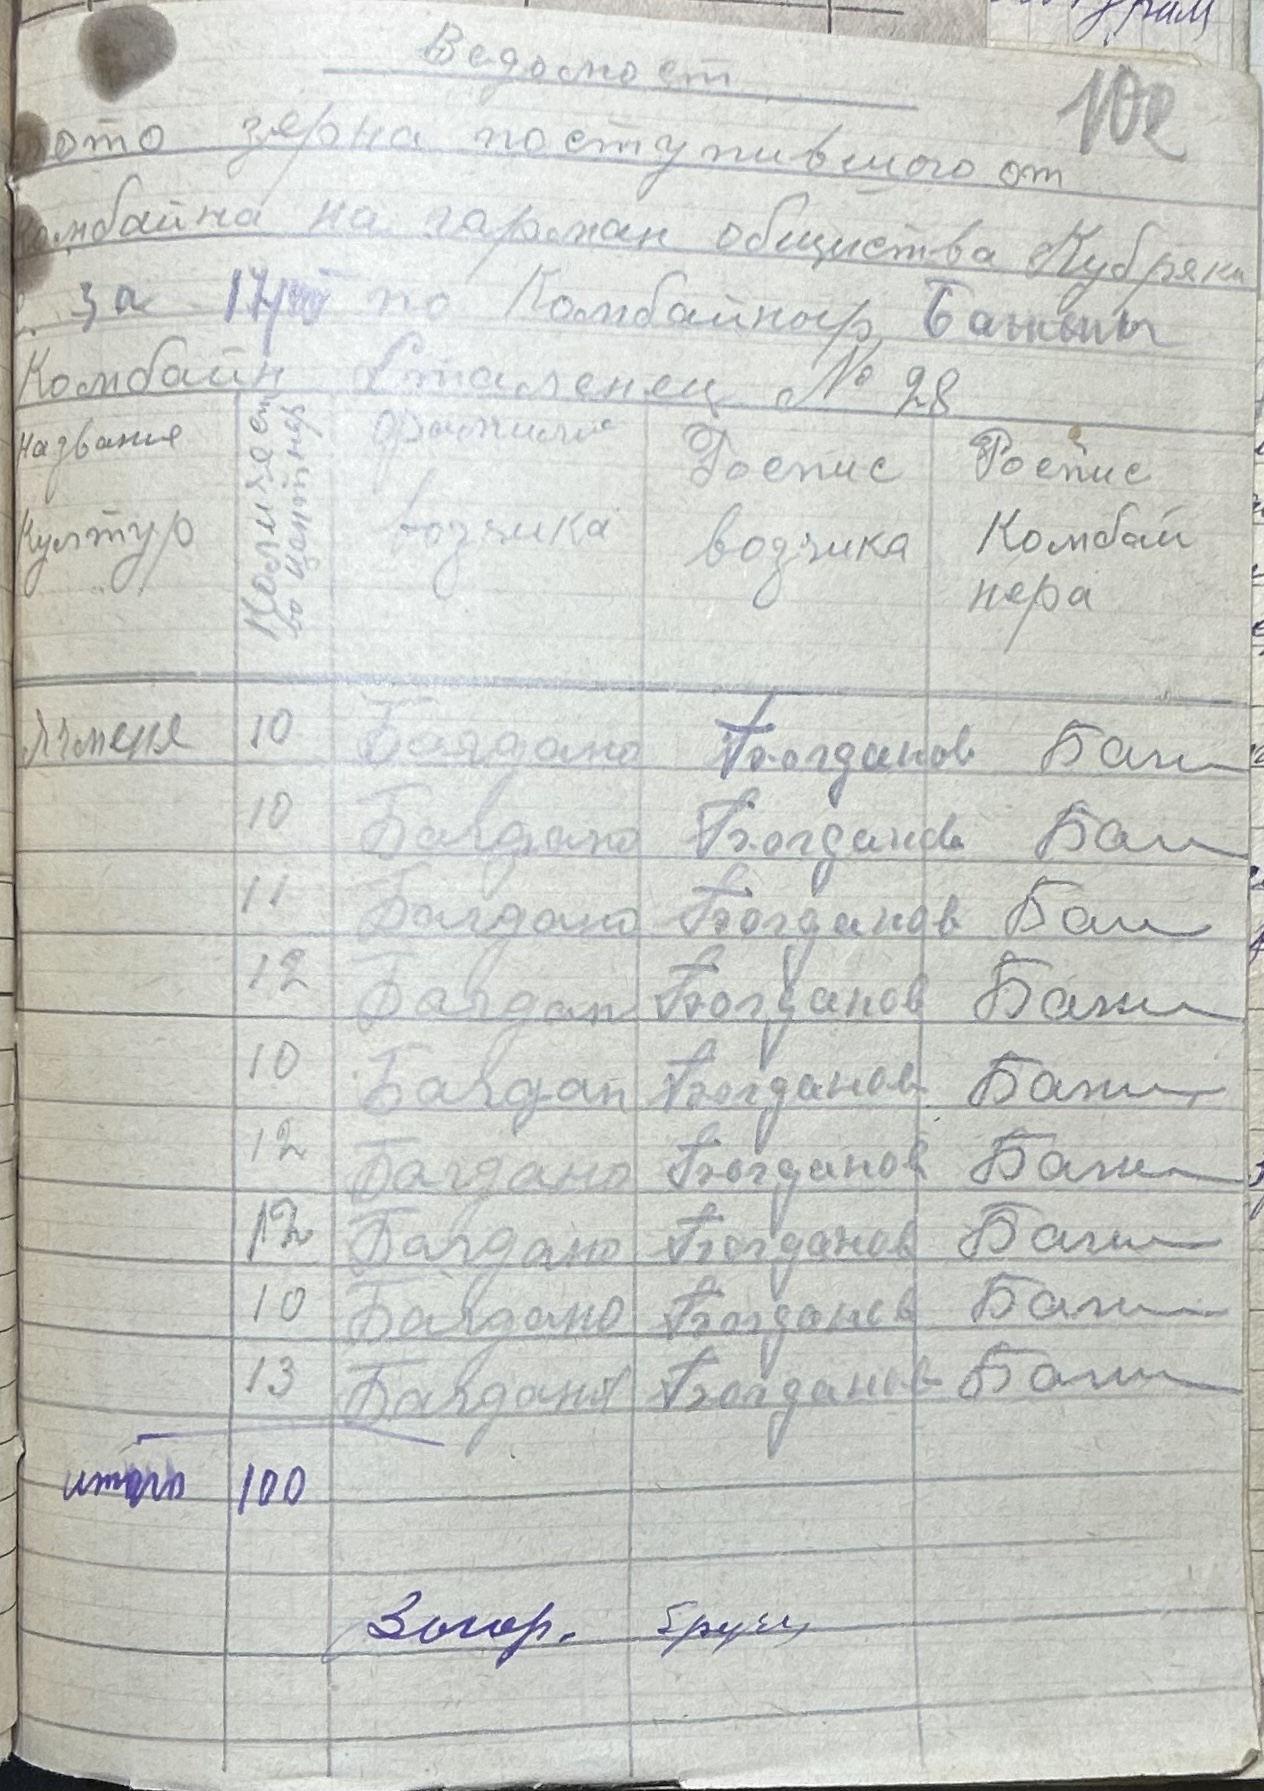 102
Ведомост
зерна поступившого от
комбайна на гарман общества Кубряки
за 17/VIII по Комбайнер Бажин
Комбайн Сталенец № 28
Названия Култур
Количест во центнер
фамилия возчика
Роспис возчика
Роспис Комбай нера
Ячменя 10 Багдано Богданов Бажи
10 Багдано Богданов Бажи
11 Багдано Богданов Бажи
12 Багдан Богданов Бажи
10 Багдан Богданов Бажи
12 Багдано Богданов Бажи
12 Багдано Богданов Бажи
10 Багдано Богданов Бажи
13 Багдано Богданов Бажи
итого 100